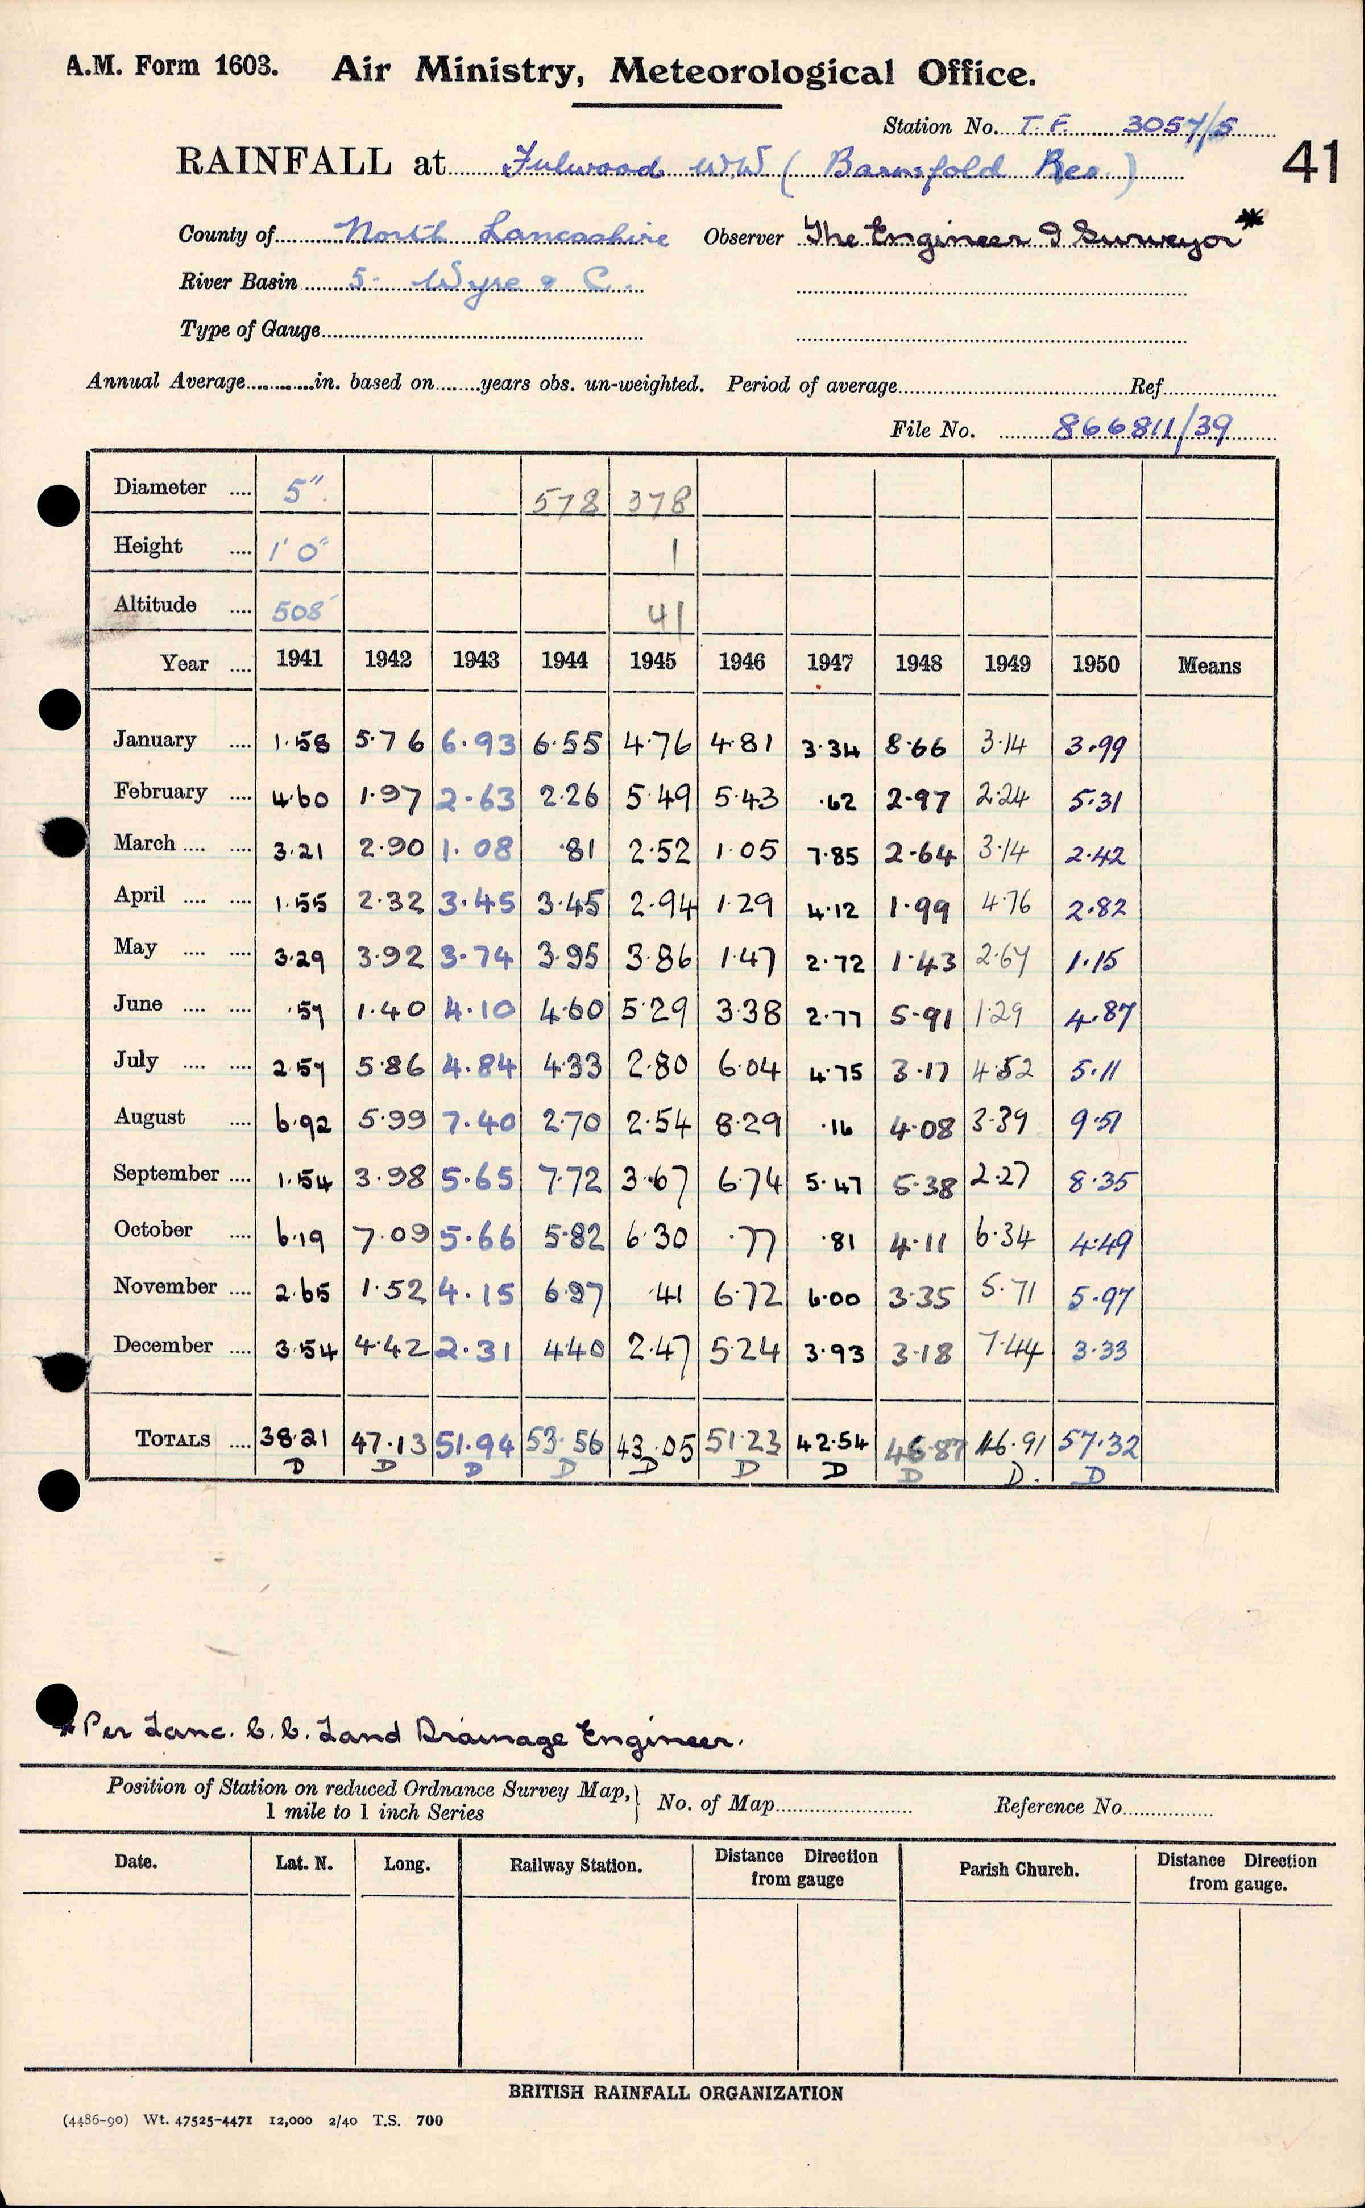 A.M. Form 1603. Air Ministry, Meteorological Office.
Station No. T.F. 3057/5
RAINFALL at Fulwood WW (Barnsfold Res.) 41
County of North Lancashire Observer The Engineer & Surveyor*
River Basin 5- Wyre & C.
Type of Gauge
Annual Average in. based on years obs. un-weighted. Period of average Ref
File No. 866811/39
Diameter 5" 578 378
Height 1' 0" 1
Altitude 508' 41
Year 1941 1942 1943 1944 1945 1946 1947 1948 1949 1950 Means
January 1.58 5.76 6.93 6.55 4.76 4.81 3.34 8.66 3.14 3.99
February 4.60 1.97 2.63 2.26 5.49 5.43 .62 2.97 2.24 5.31
March 3.21 2.90 1.08 .81 2.52 1.05 7.85 2.64 3.14 2.42
April 1.55 2.32 3.45 3.45 2.94 1.29 4.12 1.99 4.76 2.82
May 3.29 3.92 3.74 3.95 3.86 1.47 2.72 1.43 2.67 1.15
June .57 1.40 4.10 4.60 5.29 3.38 2.77 5.91 1.29 4.87
July 2.57 5.86 4.84 4.33 2.80 6.04 4.75 3.17 4.52 5.11
August 6.92 5.99 7.40 2.70 2.54 8.29 .16 4.08 3.39 9.51
September 1.54 3.98 5.65 7.72 3.67 6.74 5.47 5.38 2.27 8.35
October 6.19 7.09 5.66 5.82 6.30 .77 .81 4.11 6.34 4.49
November 2.65 1.52 4.15 6.97 .41 6.72 6.00 3.35 5.71 5.97
December 3.54 4.42 2.31 4.40 2.47 5.24 3.93 3.18 7.44 3.33
TOTALS 38.21 47.13 51.94 53.56 43.05 51.23 42.54 46.87 46.91 57.32
D D D D D D D D D. D
*Per Lanc. C.C. Land Drainage Engineer.
Position of Station on reduced Ordnance Survey Map,} No. of Map Reference No.
1 mile to 1 inch Series
Date. Lat. N. Long. Railway Station. Distance Direction from gauge Parish Church. Distance Direction from gauge.
BRITISH RAINFALL ORGANIZATION
(4486-90) Wt. 47525-4471 12,000 2/40 T.S. 700